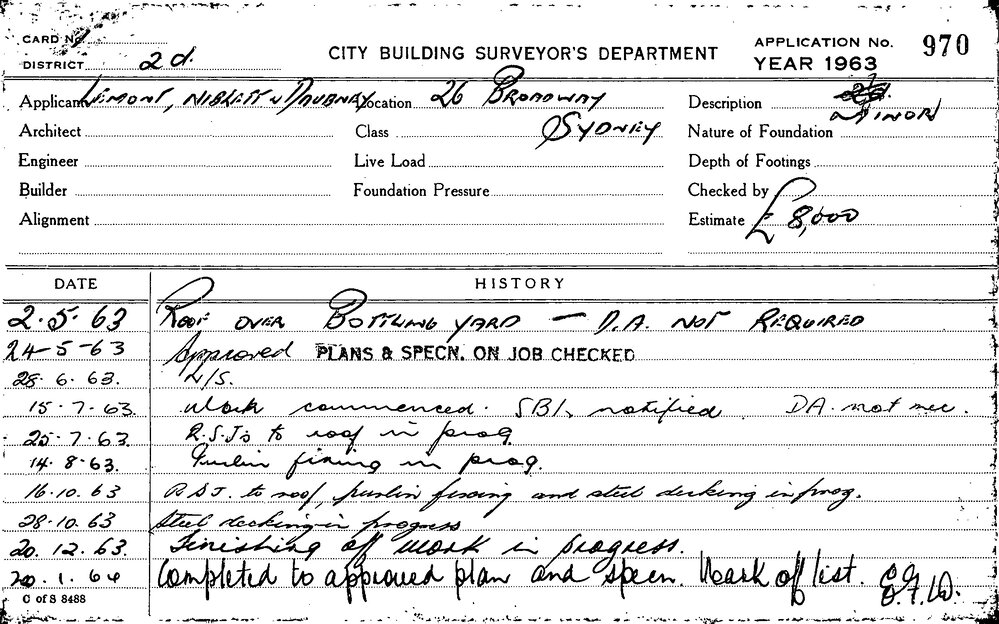 CARD No. 1
DISTRICT 2d.
CITY BUILDING SURVEYOR'S DEPARTMENT
APPLICATION No. 970
YEAR 1963
Applicant LEMONT, NIBLETT & DAUBNAY Location 26 BROADWAY Description MINOR
Architect Class SYDNEY Nature of Foundation
Engineer Live Load Depth of Footings
Builder Foundation Pressure Checked by
Alignment Estimate £ 8,000
DATE HISTORY
2.5.63 ROOF OVER BOTTLING YARD — D.A. NOT REQUIRED
24-5-63 Approved PLANS & SPECN. ON JOB CHECKED
28.6.63. N/S.
15.7.63. Work commenced. SBI. notified. DA. not nec.
25.7.63. R.S.J's to roof in prog.
14.8.63. Purlin fixing in prog.
16.10.63 RSJ. to roof, purlin fixing and steel decking in prog.
28.10.63 Steel decking in progress
20.12.63. Finishing off work in progress.
20.1.64 Completed to approved plan and specn. Mark off list.
C of S 8488